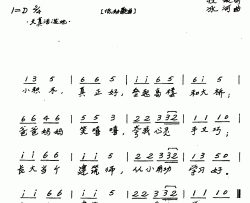 1=D 2/4
1 3 5 | 6 6 5 | i i 6 5 | 6 i 5 |
小积木，真正好，垒起高楼 和大桥；
6 6 4 6 | 5 5 3 | 2 2 3 3 2 | 1 1 1 0 |
爸爸妈妈 笑嘻嘻，夸我心灵 手又巧；
i i 6 6 | i i 5 | 2 2 3 3 2 | 1 3 5 0 |
长大当个 建筑师，从小用功 学习好。
i i 6 6 | i i 5 | 2 2 3 3 2 | 1 1 1 0 |